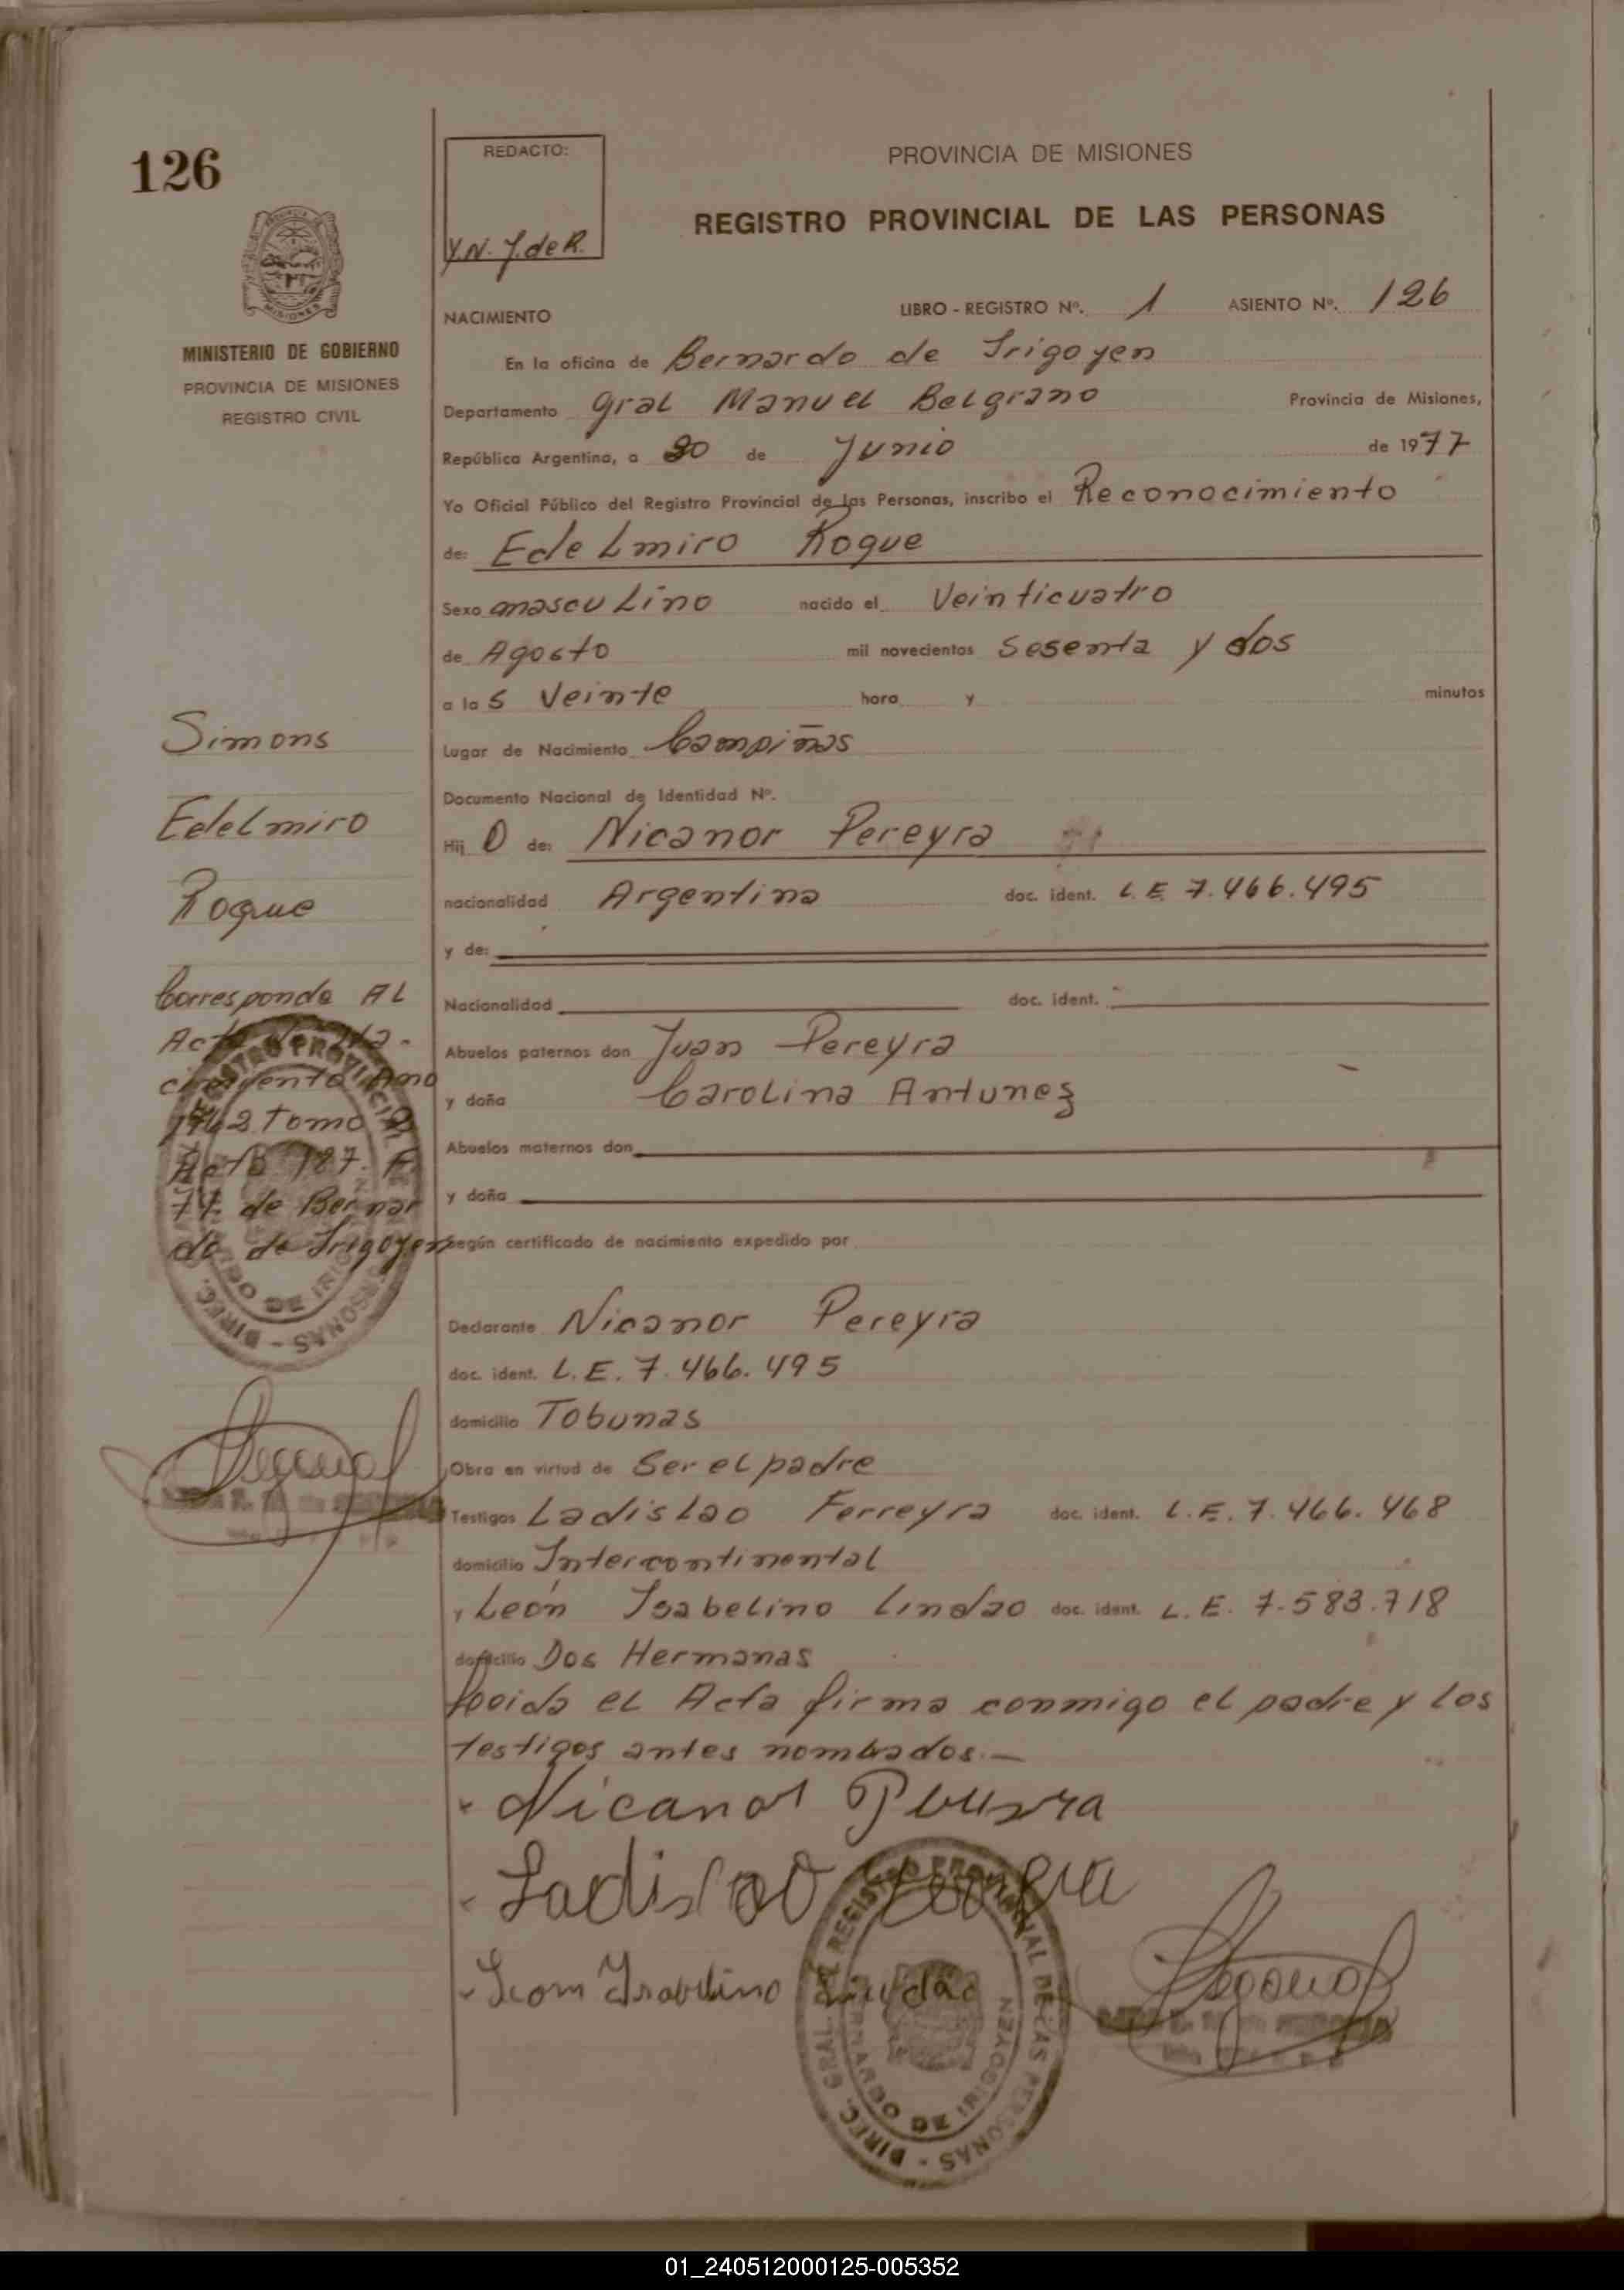 126
REDACTO:
Y.N. J. de R.
PROVINCIA DE MISIONES
REGISTRO PROVINCIAL DE LAS PERSONAS
MISIONES
MINISTERIO DE GOBIERNO
PROVINCIA DE MISIONES
REGISTRO CIVIL
NACIMIENTO LIBRO - REGISTRO Nº. 1 ASIENTO Nº. 126
En la oficina de Bernardo de Irigoyen
Departamento Gral Manuel Belgrano Provincia de Misiones,
República Argentina, a de Junio de 1977
Yo Oficial Público del Registro Provincial de las Personas, inscribo el Reconocimiento
de: Edelmiro Roque
Sexo masculino nacido el Veinticuatro
de Agosto mil novecientos Sesenta y dos
a las Veinte hora y minutos
Lugar de Nacimiento Campiñas
Documento Nacional de Identidad Nº.
Hijo de: Nicanor Pereyra
nacionalidad Argentina doc. ident. L.E. 7.466.495
y de:
Nacionalidad doc. ident.
Abuelos paternos don Juan Pereyra
y doña Carolina Antunez
Abuelos maternos don
y doña
según certificado de nacimiento expedido por
Declarante Nicanor Pereyra
doc. ident. L.E. 7.466.495
domicilio Tobunas
Obra en virtud de Ser el padre
Testigos Ladislao Ferreyra doc. ident. L.E. 7.466.468
domicilio Intercontinental
y León Isabelino Lindao doc. ident. L.E. 7.583.718
domicilio Dos Hermanas
el Acta firma conmigo el padre y los
testigos antes nombados.—
Nicanor Pereyra
Ladislao Ferreyra
Leon Isabelino Lindao
Simons
Edelmiro
Roque
Corresponde AL
Acta de Na-
cimiento Año
1962 Tomo 2
Acta 187. F.
77. de Bernar
do de Irigoyen
DIREC. GRAL. DEL REGISTRO PROVINCIAL DE LAS PERSONAS
BERNARDO DE IRIGOYEN
01_240512000125-005352